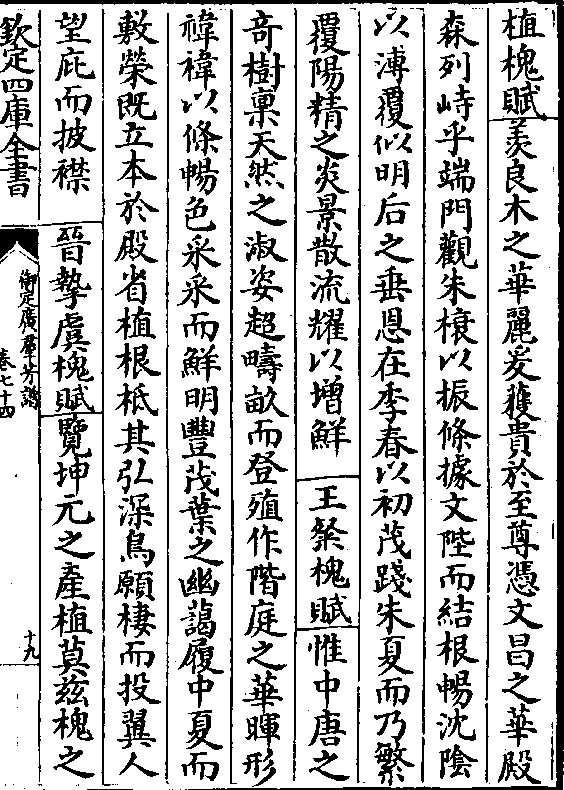 植槐賦羨良木之華麗爰獲貴於至尊憑文昌之華殿
森列峙乎端門觀朱榱以振條據文陛而結根暢沈陰
以溥覆似明后之垂恩在季春以初茂踐朱夏而乃繁
覆陽精之炎景散流耀以增鮮 王粲槐賦惟中唐之
奇樹稟天然之淑姿超疇畝而登殖作階庭之華暉形
褘褘以條暢色采采而鮮明豐茂葉之幽藹履中夏而
敷榮既立本於殿省植根柢其弘深鳥願棲而投翼人
望庇而披襟 晉摯虞槐賦覽坤元之產植莫茲槐之
欽定四庫全書
御定廣羣芳譜
卷七十四
十九